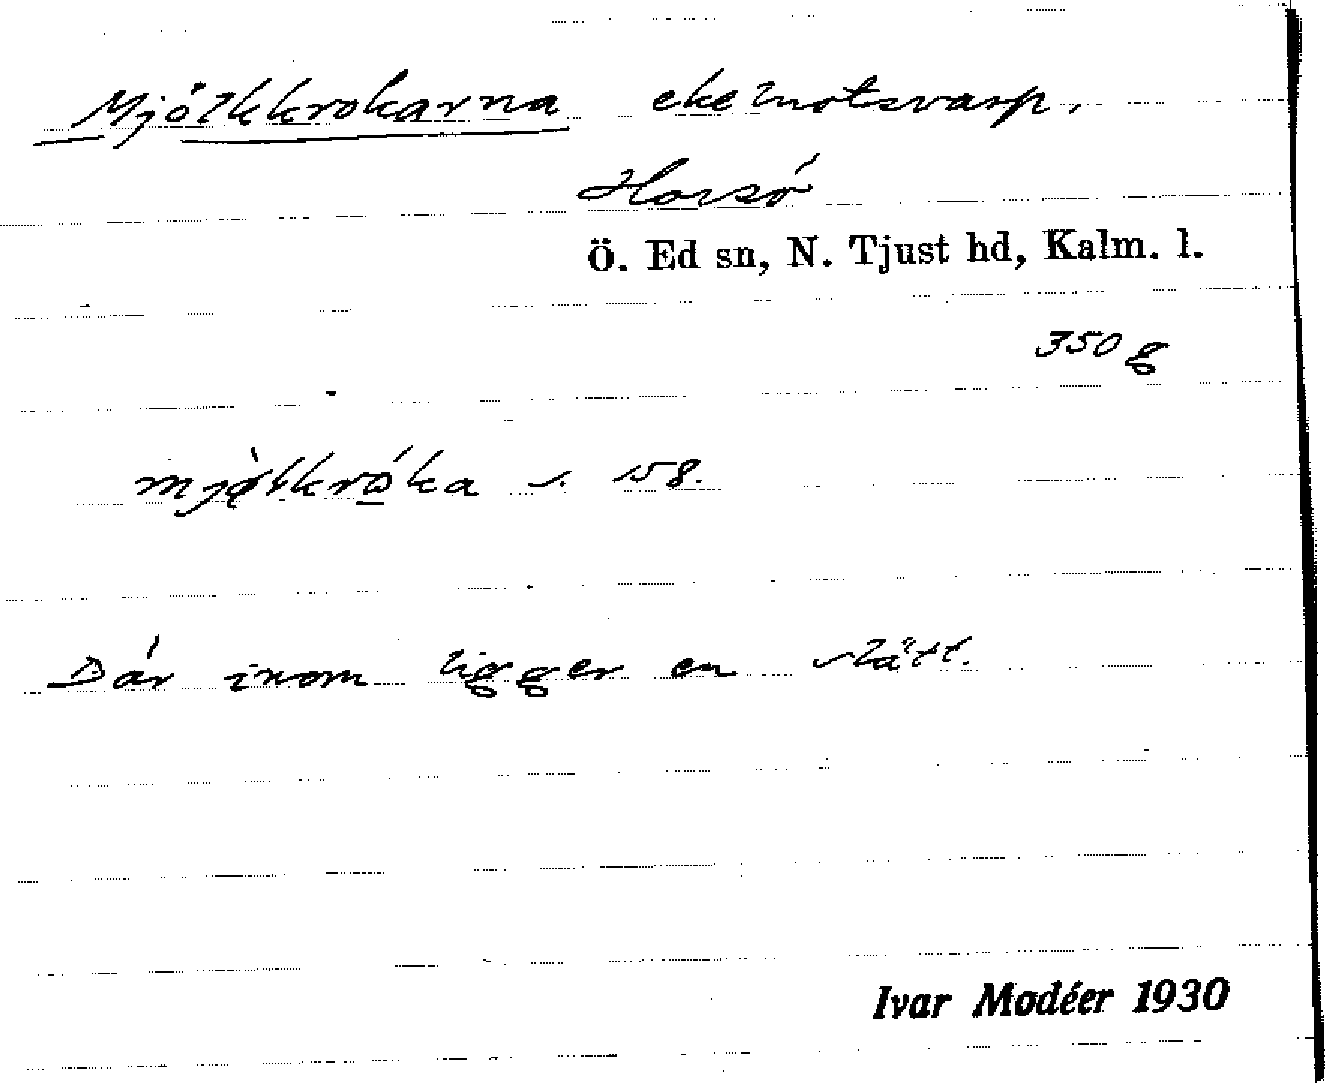 Mjölkkrokarna ekelnotsvarp.
Horsö
Ö. Ed sn, N. Tjust hd, Kalm. l.
350 g
mjö̀lkró̱ka s. 158.
Där inom ligger en slätt.
Ivar Modéer 1930